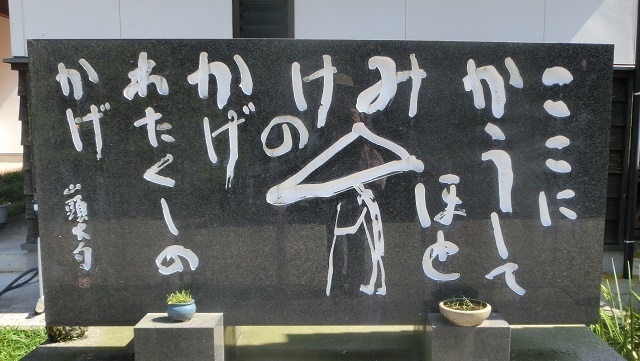 ここに
かうして
みほとけの
かげ
わたくしの
かげ
山頭火句